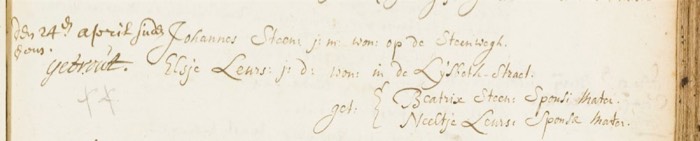 den 24en april
Johannes Steen: j: m: won: op de Steenwegh.
getrout.
Elsje Leurs: j: d: won: in de Lijsbeth-Straet.
get: { Beatrix Steen: Sponsi Mater.
Neeltje Leurs: Sponsæ Mater.